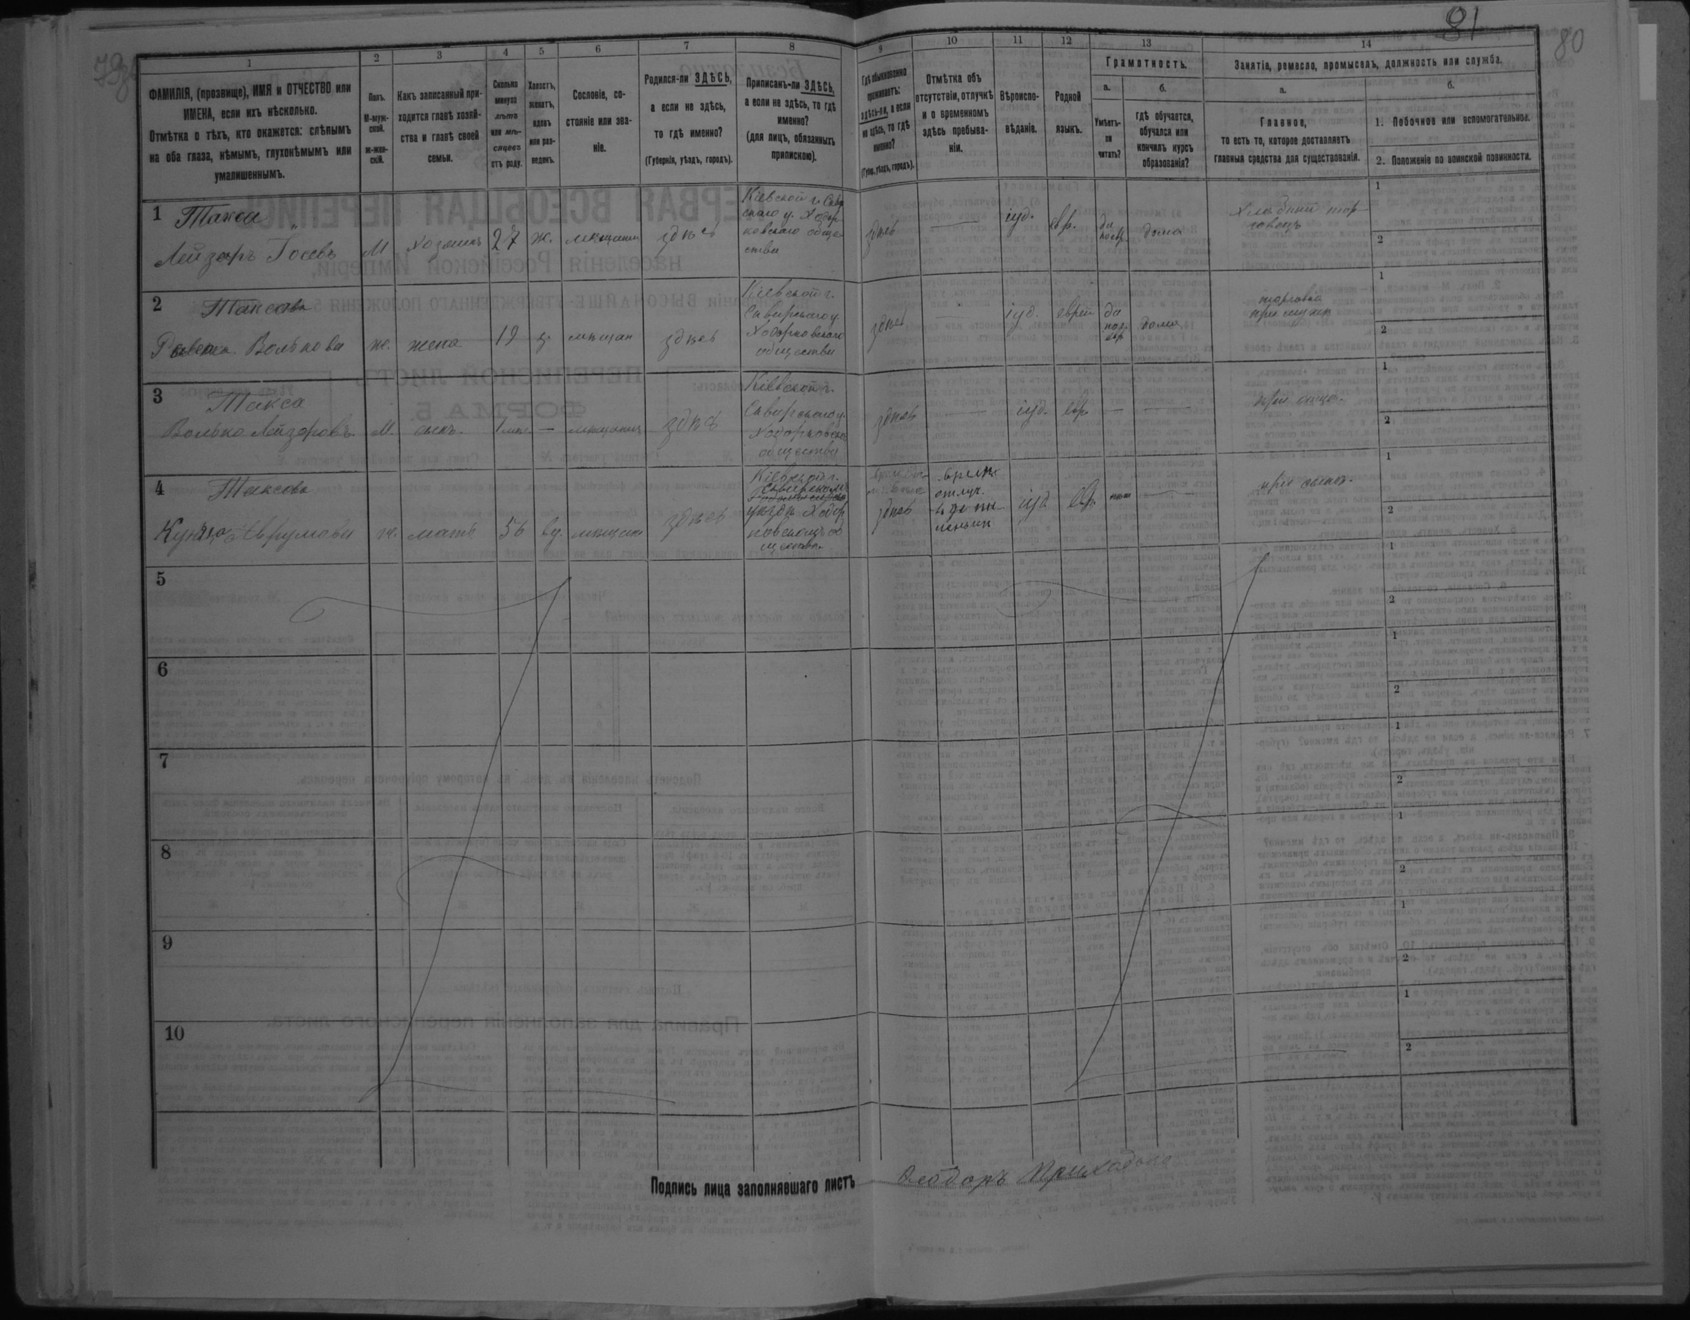 81
80
79
1
2
3
4
5
6
7
8
9
10
11
12
13
14
ФАМИЛІЯ, (прозвище), ИМЯ и ОТЧЕСТВО или
ИМЕНА, если ихъ нѣсколько.
Отмѣтка о тѣхъ, кто окажется: слѣпымъ
на оба глаза, нѣмымъ, глухонѣмымъ или
умалишеннымъ.
Полъ.
М-муж-
ской.
ж-жен-
скій.
Какъ записанный при-
ходится главѣ хозяй-
ства и главѣ своей
семьи.
Сколько
минуло
лѣтъ
или мѣ-
сяцевъ
отъ роду.
Холостъ,
женатъ,
вдовъ
или раз-
веденъ.
Сословіе, со-
стояніе или зва-
ніе.
Родился-ли ЗДѢСЬ,
а если не здѣсь,
то гдѣ именно?
(Губернія, уѣздъ, городъ).
Приписанъ-ли ЗДѢСЬ,
а если не здѣсь, то гдѣ
именно?
(для лицъ, обязанныхъ
припискою).
Гдѣ обыкновенно
проживаетъ:
здѣсь-ли, а если
не здѣсь, то гдѣ
именно?
(Губ., уѣздъ, городъ).
Отмѣтка объ
отсутствіи, отлучкѣ
и о временномъ
здѣсь пребыва-
ніи.
Вѣроиспо-
вѣданіе.
Родной
языкъ.
Грамотность.
а.
Умѣетъ-
ли
читать?
б.
Гдѣ обучается,
обучался или
кончилъ курсъ
образованія?
Занятія, ремесло, промыселъ, должность или служба.
а.
Главное,
то есть то, которое доставляетъ
главныя средства для существованія.
б.
1. Побочное или вспомогательное.
2. Положеніе по воинской повинности.
1 Такса
Лейзаръ Іосевъ М. хозяинъ 27 ж. мѣщанин здѣсь
Кіевской г. Сквир-
скаго у. Ходор-
ковскаго обще-
ства
здѣсь — іуд. евр. да дома
Хлѣбный тор-
говецъ
1
2
2 Таксова
Волькова ж. жена 19 з. мѣщан здѣсь
Кіевской г.
Сквирскаго у.
Ходорковскаго
общества
здѣсь — іуд. еврей да дома
при мужѣ
1
2
3 Такса
Волько Лейзаровъ М. сынъ — мѣщанинъ здѣсь
Кіевской г.
Сквирскаго у.
Ходорковскаго
общества
здѣсь — іуд. евр. — —
при отцѣ.
1
2
4 Таксова
ж. мать 56 вд. мѣщан здѣсь
Кіевской г.
уѣзда Ходор
ковскаго об
щества
здѣсь
времен.
отлуч.
іуд. евр. —
при сынѣ.
1
2
5
1
2
6
1
2
7
1
2
8
1
2
9
1
2
10
1
2
Подпись лица заполнявшаго листъ Ѳеодоръ Приходько